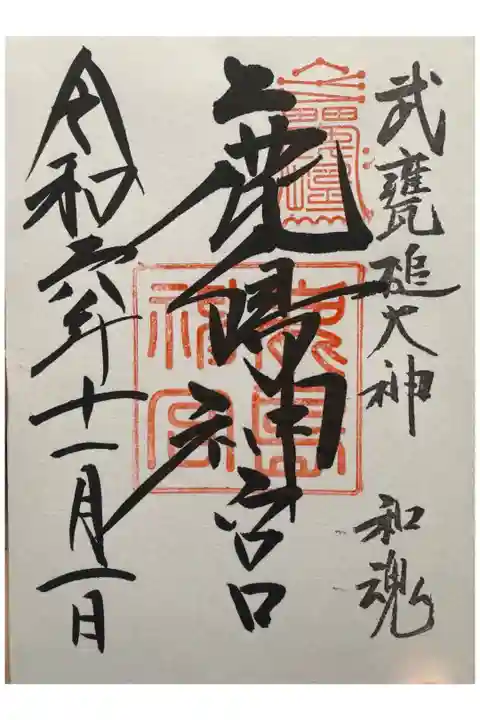 武甕槌大神 和魂
鹿嶋神宮
鹿島神宮
令和六年十一月一日